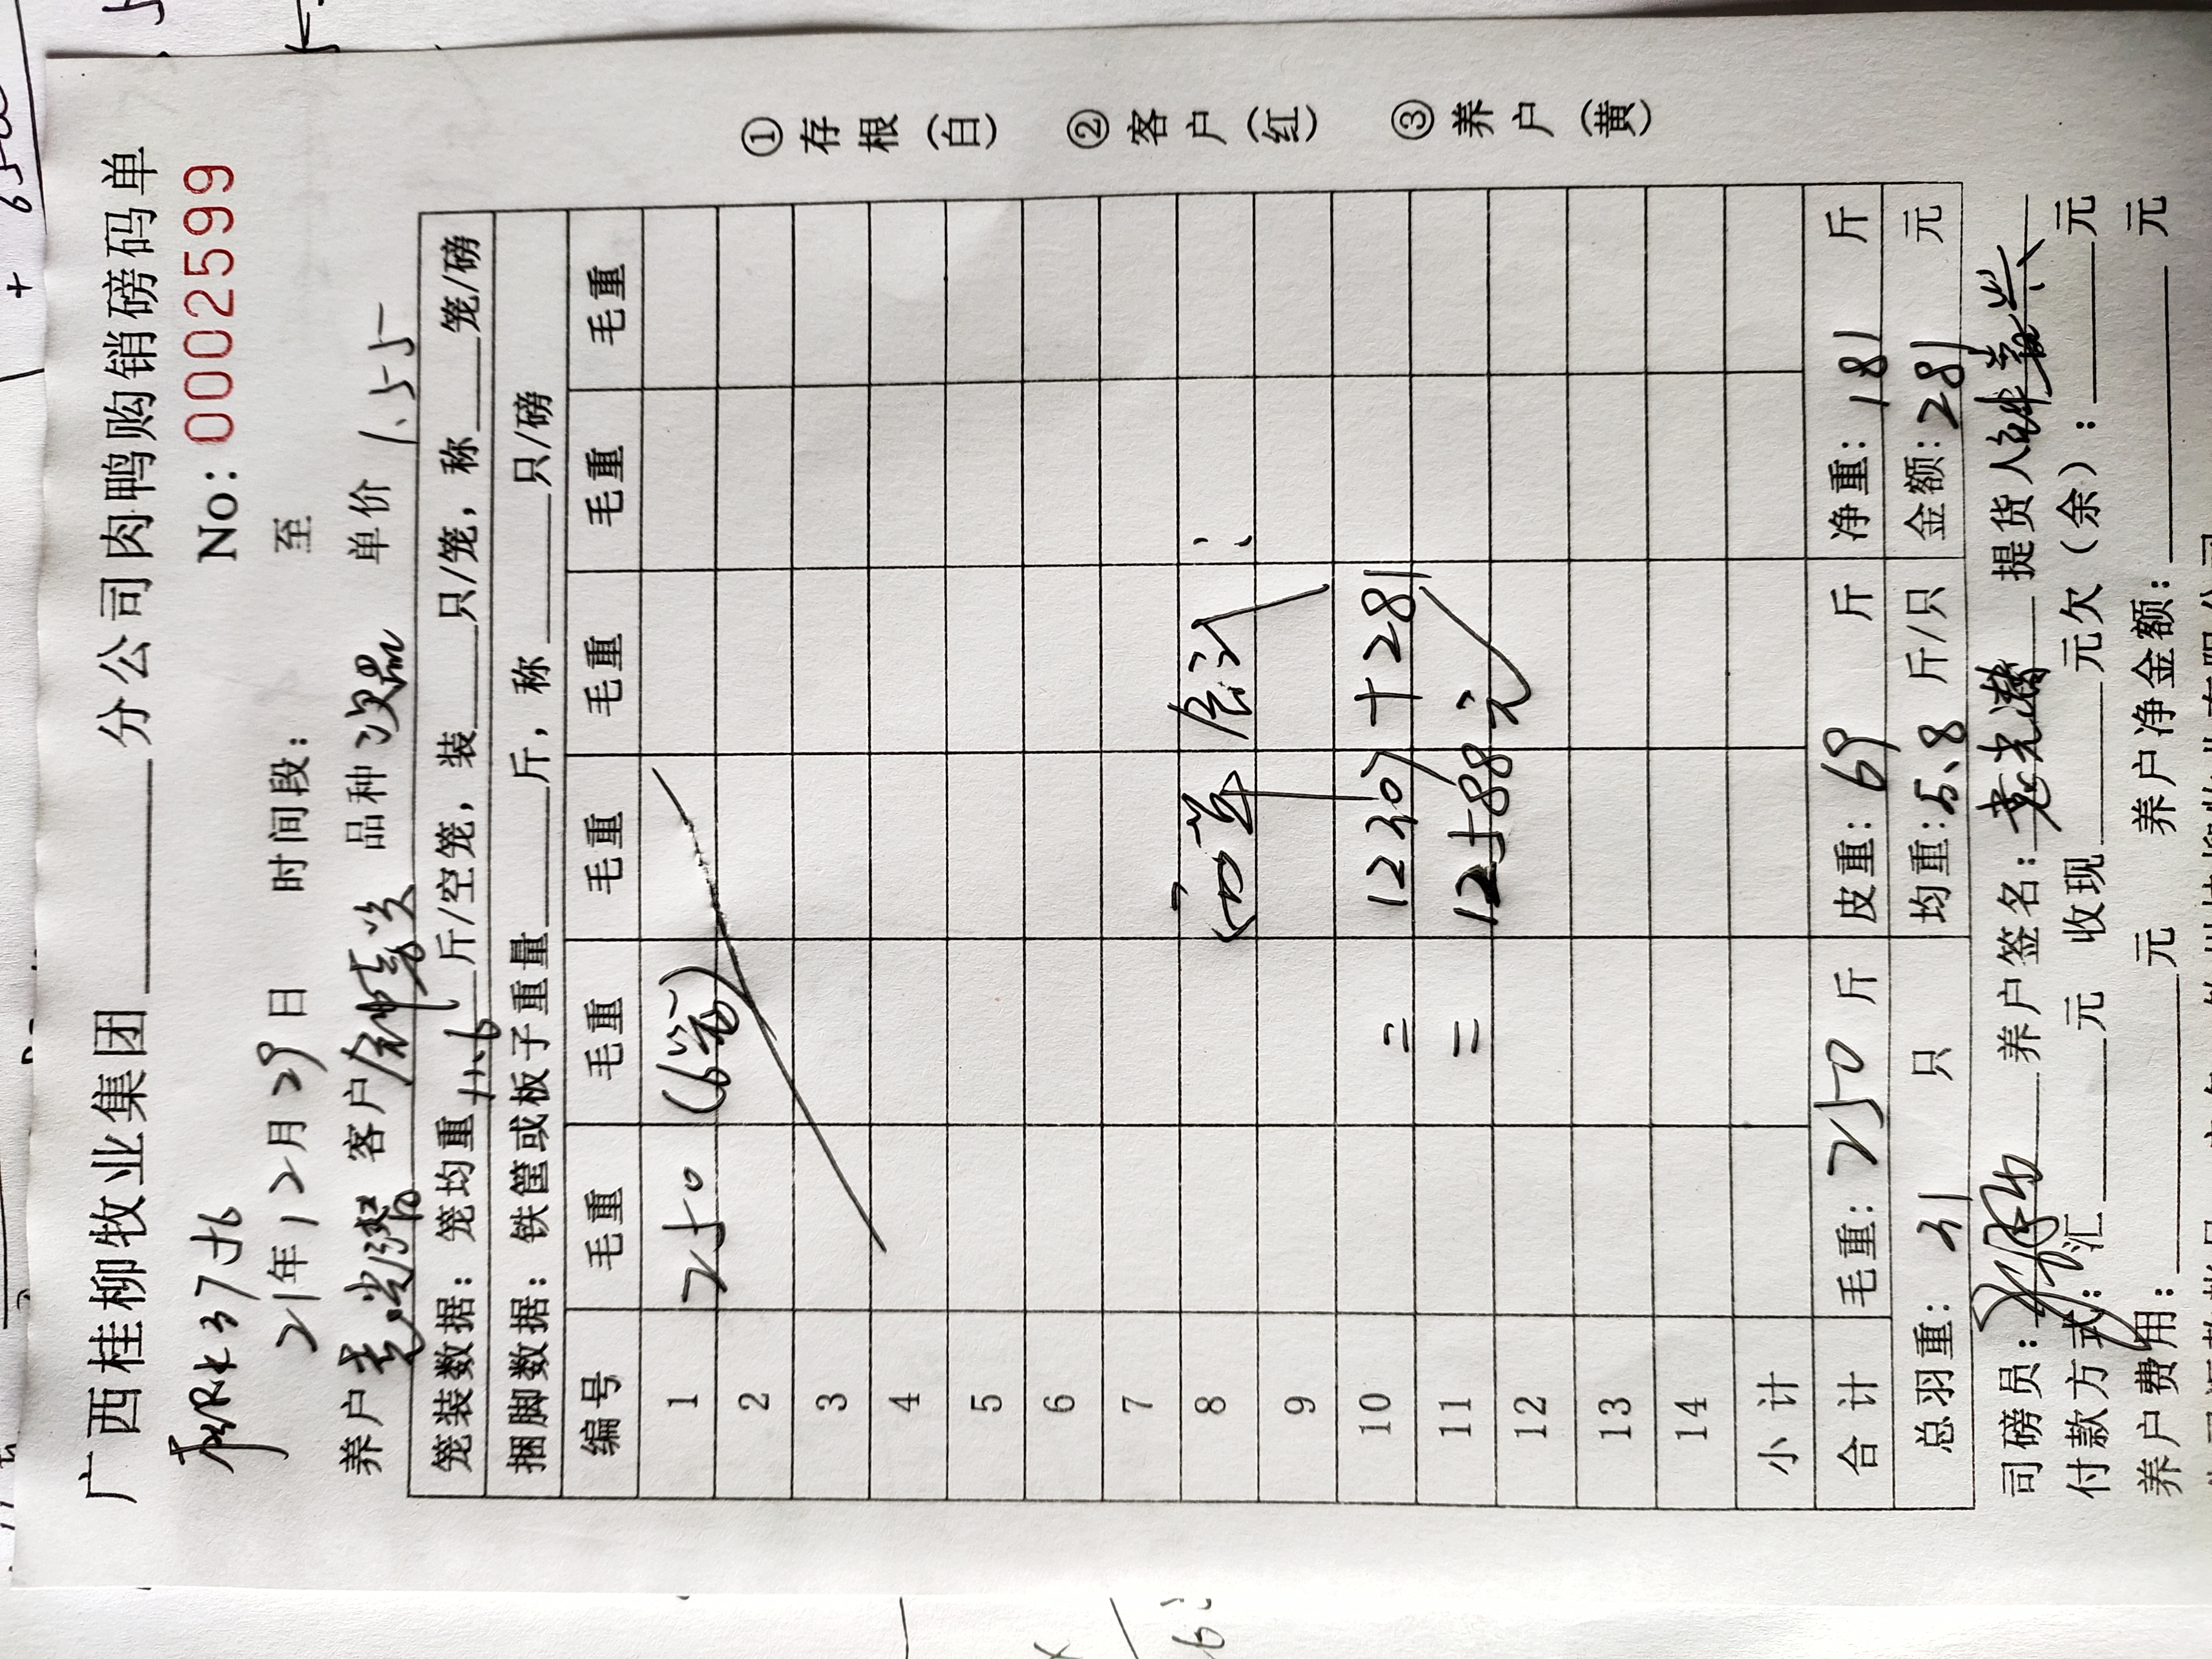 广西桂柳牧业集团______分公司肉鸭购销磅码单
No: 0002599
21年12月29日 时间段: 至
养户 客户 品种 次品 单价 1.55
笼装数据: 笼均重 11.6 斤/空笼, 装___只/笼, 称___笼/磅
捆脚数据: 铁筐或板子重量___斤, 称___只/磅
编号 毛重 毛重 毛重 毛重 毛重 毛重
1 250 (6笼)
2
3
4
5
6
7
8
9
10 = 12307+281
11 = 12588元
12
13
14
小计
合计 毛重: 250 斤 皮重: 69 斤 净重: 181 斤
总羽重: 31 只 均重: 5.8 斤/只 金额: 281 元
司磅员: 养户签名: 提货人
付款方式: 汇______元 收现______元欠(余):______元
养户费用:______元 养户净金额:______元
①存根(白) ②客户(红) ③养户(黄)